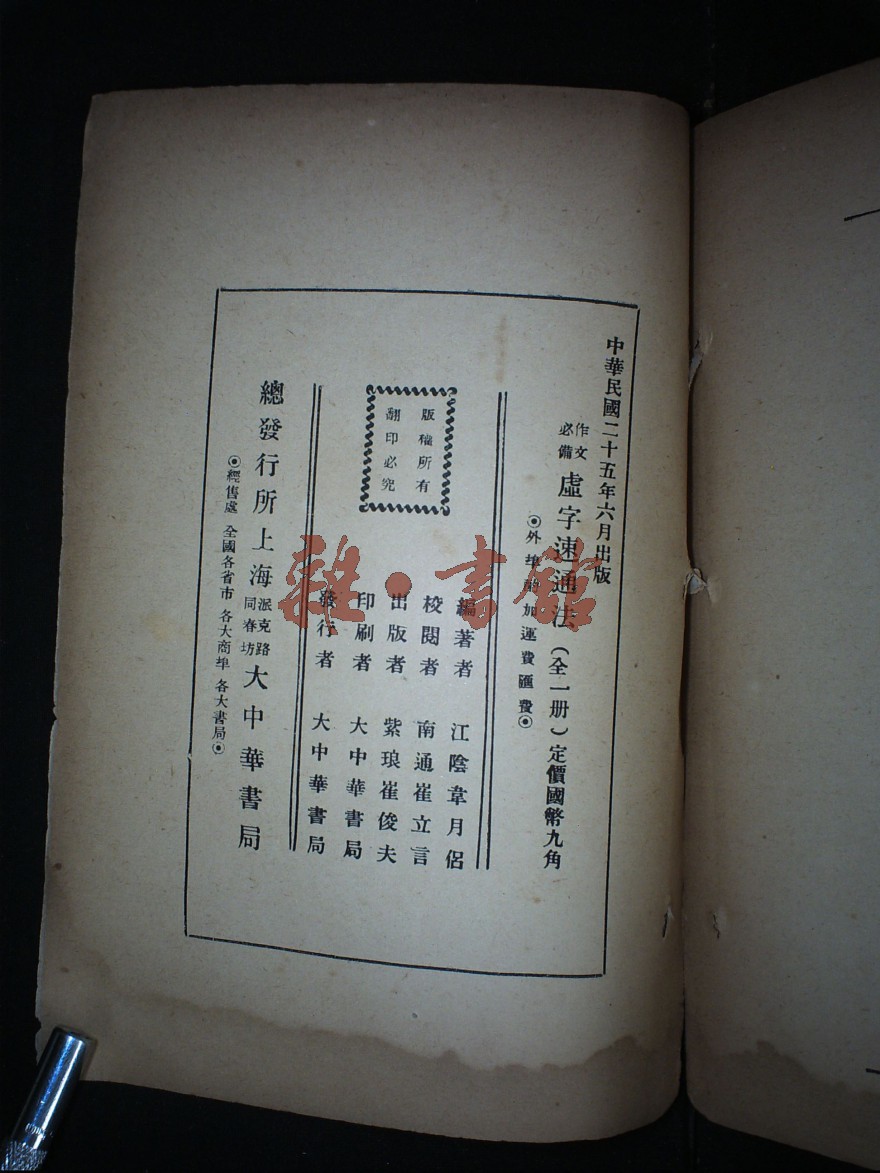 中華民國二十五年六月出版
作文必備 虛字速通法(全一册)定價國幣九角
◉外埠酌加運費匯費◉
編著者 江陰韋月侶
校閱者 南通崔立言
出版者 紫琅崔俊夫
印刷者 大中華書局
發行者 大中華書局
版權所有
翻印必究
總發行所上海派克路同春坊大中華書局
◉經售處 全國各省市 各大商埠 各大書局◉
雜·書館